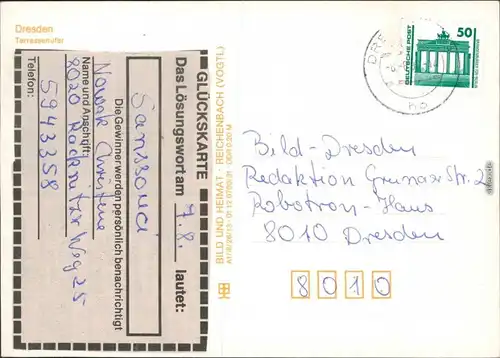 Dresden
Terrassenufer
GLÜCKSKARTE
Das Lösungswort am 7.8. lautet:
Sanssouci
Die Gewinner werden persönlich benachrichtigt
Name und Anschrift:
Nowak Christine
8020 Räcknitzer Weg 25
Telefon:
5943258
BILD UND HEIMAT · REICHENBACH (VOGTL)
50
DEUTSCHE POST
Bild-Dresden
Redaktion Grunaer Str. 2
Robotron-Haus
8010 Dresden
8010